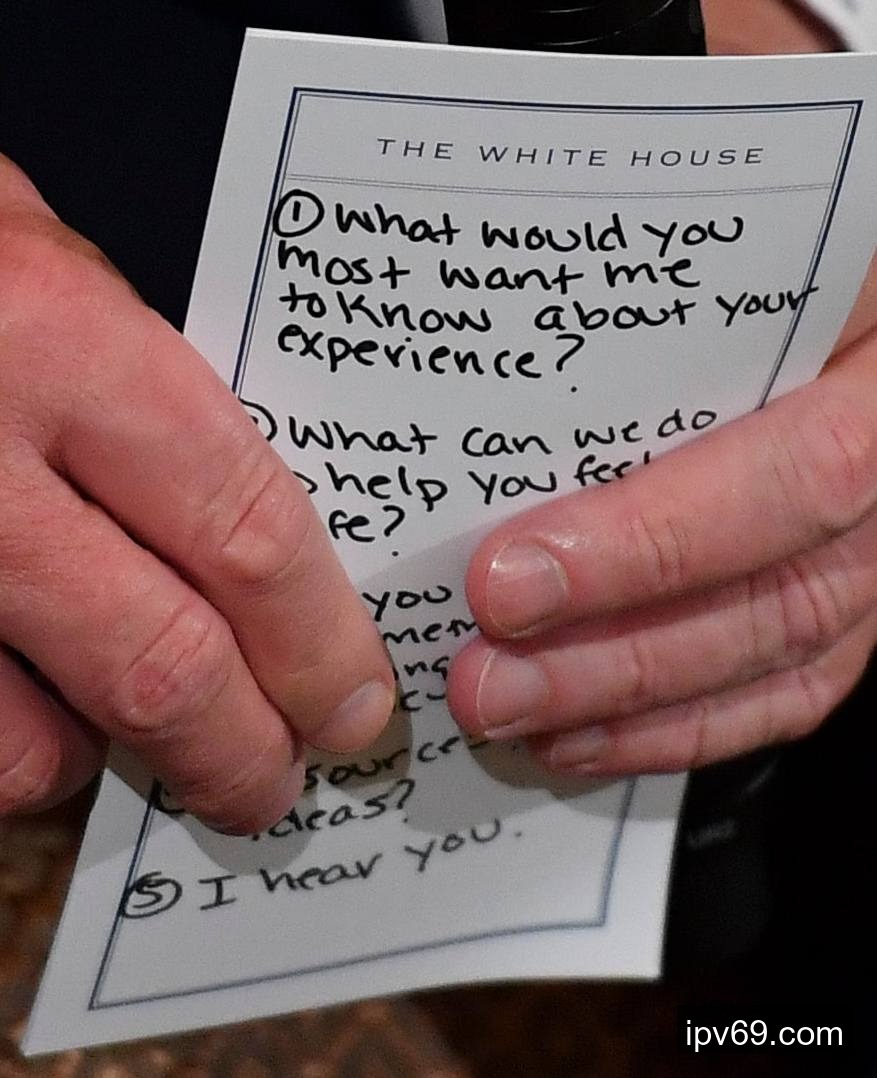 THE WHITE HOUSE
① What would you
most want me
to know about your
experience?
What can we do
help you feel
fe?
you
ideas?
⑤ I hear you.
ipv69.com